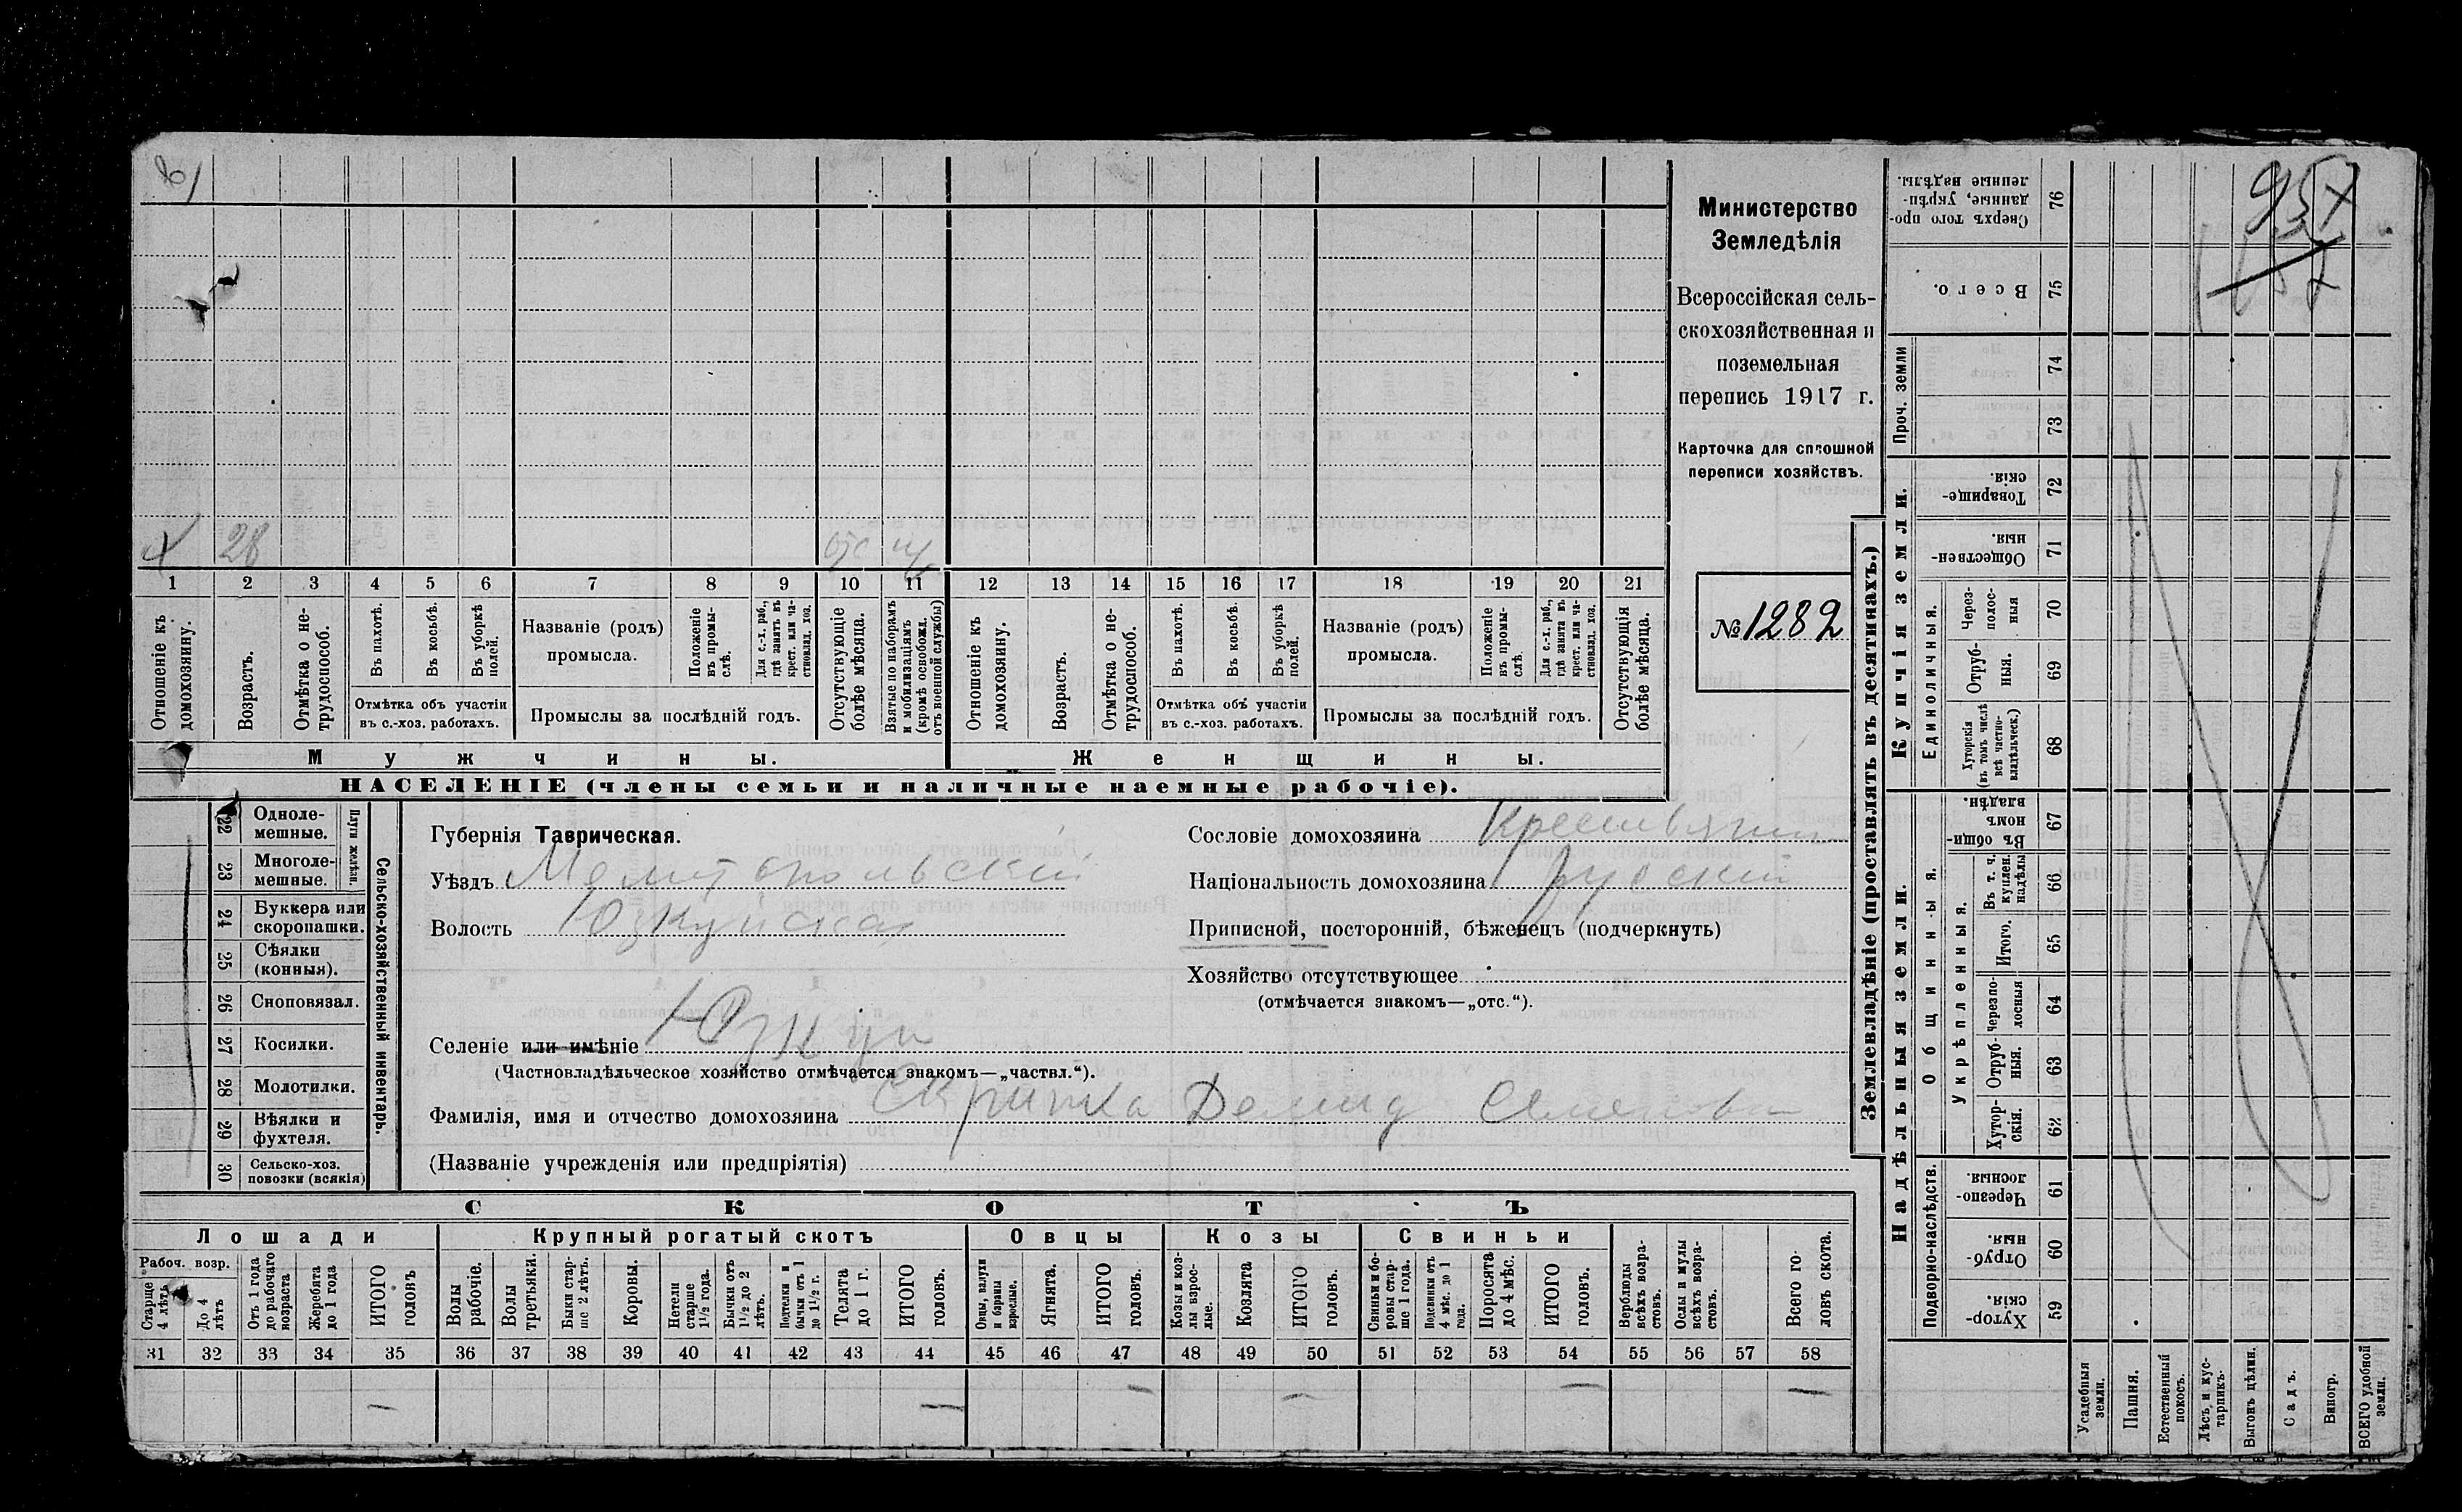 Министерство
Земледѣлія
Всероссійская сель-
скохозяйственная и
поземельная
перепись 1917 г.
Карточка для сплошной
переписи хозяйствъ.
№ 1282
х 28 отс
1 2 3 4 5 6 7 8 9 10 11 12 13 14 15 16 17 18 19 20 21
Отношеніе къ домохозяину.
Возрастъ.
Отмѣтка о не-трудоспособ.
Въ пахотѣ.
Въ косьбѣ.
Въ уборкѣ полей.
Отмѣтка объ участіи
въ с.-хоз. работахъ.
Названіе (родъ)
промысла.
Положеніе въ промы-слѣ.
Для с.-х. раб., гдѣ занятъ въ крест. или ча-стновлад. хоз.
Промыслы за послѣдній годъ.
Отсутствующіе болѣе мѣсяца.
Взятые по наборамъ и мобилизаціямъ (кромѣ освобожд. отъ военной службы)
Отношеніе къ домохозяину.
Возрастъ.
Отмѣтка о не-трудоспособ.
Въ пахотѣ.
Въ косьбѣ.
Въ уборкѣ полей.
Отмѣтка объ участіи
въ с.-хоз. работахъ.
Названіе (родъ)
промысла.
Положеніе въ промы-слѣ.
Для с.-х. раб., гдѣ занятъ въ крест. или ча-стновлад. хоз.
Промыслы за послѣдній годъ.
Отсутствующія болѣе мѣсяца.
Мужчины.
Женщины.
НАСЕЛЕНІЕ (члены семьи и наличные наемные рабочіе).
22 Одноле-мешные.
23 Многоле-мешные.
Плуги желѣзн.
24 Буккера или скоропашки.
25 Сѣялки (конныя).
26 Сноповязал.
27 Косилки.
28 Молотилки.
29 Вѣялки и фухтеля.
30 Сельско-хоз. повозки (всякія)
Сельско-хозяйственный инвентарь.
Губернія Таврическая.
Уѣздъ Мелитопольскій
Волость Юзкуйская
Селеніе или имѣніе Юзкуи
(Частновладѣльческое хозяйство отмѣчается знакомъ—„частвл.“).
Фамилія, имя и отчество домохозяина Скрипка Демид Семенови
(Названіе учрежденія или предпріятія)
Сословіе домохозяина Крестьянин
Національность домохозяина русскій
Приписной, посторонній, бѣженецъ (подчеркнуть)
Хозяйство отсутствующее
(отмѣчается знакомъ—„отс.“).
СКОТЪ
Лошади
Крупный рогатый скотъ
Овцы
Козы
Свиньи
Рабоч. возр.
Старше 4 лѣтъ
До 4 лѣтъ
Отъ 1 года до рабочаго возраста
Жеребята до 1 года
ИТОГО головъ
Волы рабочіе.
Волы третьяки.
Быки стар-ше 2 лѣтъ.
Коровы.
Нетели старше 1½ года.
Бычки отъ 1½ до 2 лѣтъ.
Подтелки и бычки отъ 1 до 1½ г.
Телята до 1 г.
ИТОГО головъ.
Овцы, валухи и бараны взрослые.
Ягнята.
ИТОГО головъ.
Козы и коз-лы взрос-лые.
Козлята
ИТОГО головъ.
Свиньи и бо-ровы стар-ше 1 года.
Подсвинки отъ 4 мѣс. до 1 года.
Поросята до 4 мѣс.
ИТОГО головъ.
Верблюды всѣхъ возра-стовъ.
Ослы и мулы всѣхъ возра-стовъ.
Всего го-ловъ скота.
31 32 33 34 35 36 37 38 39 40 41 42 43 44 45 46 47 48 49 50 51 52 53 54 55 56 57 58
— — — — — —
Землевладѣніе (проставлять въ десятинахъ.)
Купчія земли.
Надѣльныя земли.
Сверхъ того про-данные, укрѣп-ленные надѣлы. 76
Всего. 75
Проч. земли
74
73
Товарище-скія 72
Обществен-ныя. 71
Единоличныя.
Через-полос-ныя 70
Отруб-ныя. 69
Хуторскія (въ томъ числѣ всѣ частно-владѣльческ.) 68
Общинныя.
Въ общи-номъ владѣн. 67
Укрѣпленныя.
Въ т. ч. куплен. надѣлы 66
Итого. 65
Черезпо-лосныя 64
Отруб-ныя. 63
Хутор-скія. 62
Подворно-наслѣдств.
Черезпо-лосныя. 61
Отруб-ныя. 60
Хутор-скія 59
Усадебныя земли.
Пашня.
Естественный покосъ.
Лѣсъ и кус-тарникъ.
Выгонъ цѣлин.
Садъ.
Виногр.
ВСЕГО удобной земли.